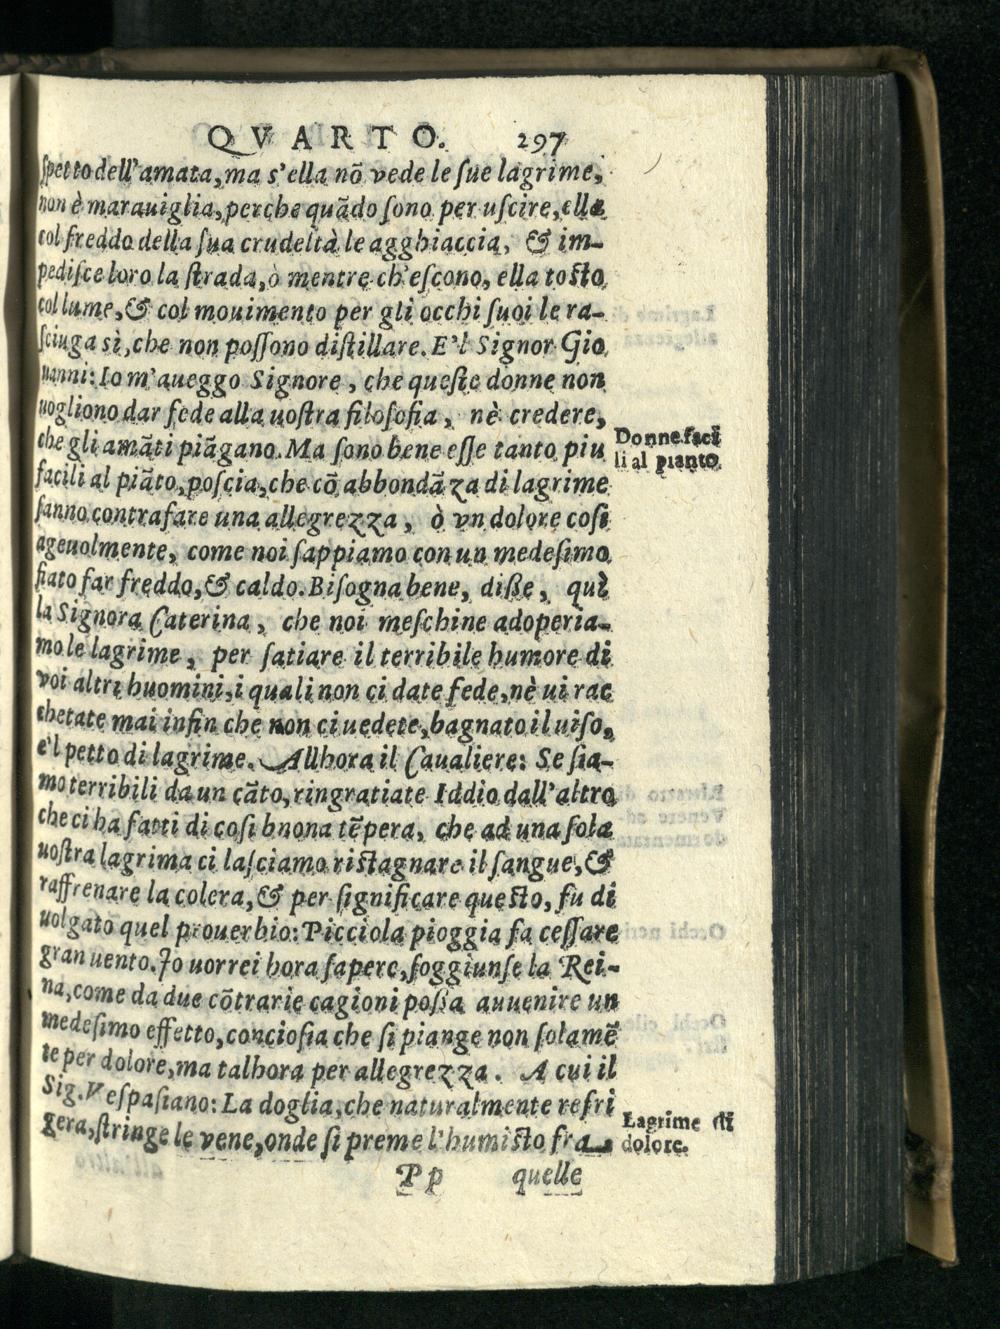 QVARTO. 297
ſpetto dell'amata, ma s'ella nõ vede le ſue lagrime,
non è marauiglia, perche quãdo ſono per uſcire, ella
col freddo della ſua crudeltà le agghiaccia, & im-
pediſce loro la ſtrada, ò mentre ch'eſcono, ella toſto
col lume, & col mouimento per gli occhi ſuoi le ra-
ſciuga sì, che non poſſono diſtillare. E'l Signor Gio
uanni: Io m'aueggo Signore, che queſte donne non
uogliono dar fede alla uoſtra filoſofia, nè credere,
che gli amãti piãgano. Ma ſono bene eſſe tanto piu
Donne faci
li al pianto.
facili al piãto, poſcia, che cõ abbondãza di lagrime
ſanno contrafare una allegrezza, ò vn dolore coſi
ageuolmente, come noi ſappiamo con un medeſimo
fiato far freddo, & caldo. Biſogna bene, diße, quì
la Signora Caterina, che noi meſchine adoperia-
mo le lagrime, per ſatiare il terribile humore di
voi altri huomini, i quali non ci date fede, nè ui rac
chetate mai infin che non ci uedete, bagnato il uiſo,
e'l petto di lagrime. Allhora il Caualiere: Se ſia-
mo terribili da un cãto, ringratiate Iddio dall'altro
che ci ha fatti di coſi buona tẽpera, che ad una ſola
uoſtra lagrima ci laſciamo riſtagnare il ſangue, &
raffrenare la colera, & per ſignificare queſto, fù di
uolgato quel prouerbio: Picciola pioggia fa ceſſare
gran uento. Io uorrei hora ſapere, ſoggiunſe la Rei-
na, come da due cõtrarie cagioni poßa auuenire un
medeſimo effetto, conciosia che ſi piange non ſolamẽ
te per dolore, ma talhora per allegrezza. A cui il
Sig. Veſpaſiano: La doglia, che naturalmente refri
gera, ſtringe le vene, onde ſi preme l'humiſto fra
Lagrime di
dolore.
Pp quelle